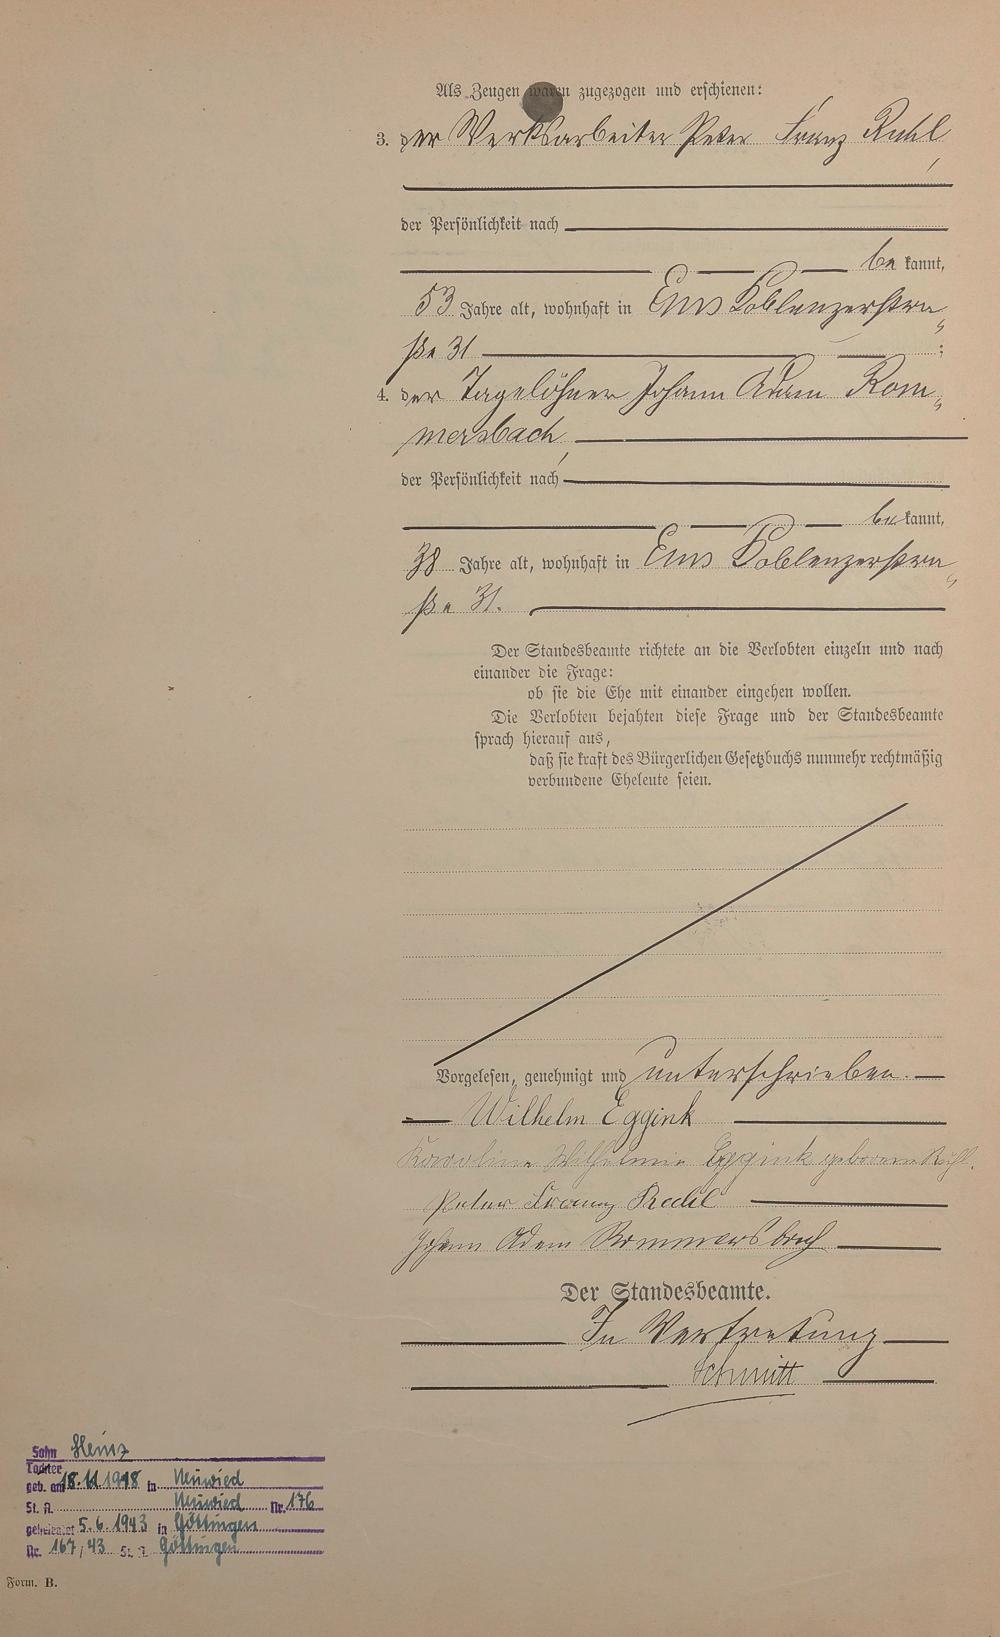 Als Zeugen waren zugezogen und erschienen:
3. der Werksarbeiter Peter Franz Ruhl
der Persönlichkeit nach
be kannt,
53 Jahre alt, wohnhaft in Ems Koblenzerstra„
ße 31 ;
4. der Tagelöhner Johann Adam Rom„
mersbach,
der Persönlichkeit nach
be kannt,
38 Jahre alt, wohnhaft in Ems Koblenzerstra„
ße 31.
Der Standesbeamte richtete an die Verlobten einzeln und nach
einander die Frage:
ob sie die Ehe mit einander eingehen wollen.
Die Verlobten bejahten diese Frage und der Standesbeamte
sprach hierauf aus,
daß sie kraft des Bürgerlichen Gesetzbuchs nunmehr rechtmäßig
verbundene Eheleute seien.
Vorgelesen, genehmigt und unterschrieben.
Wilhelm Eggink
Karoline Wilhelmine Eggink geborene Ruhl.
Peter Franz Ruhl
Johann Adam Rommersbach
Der Standesbeamte.
In Vertretung
Schmitt
Sohn Heinz
Tochter
geb. am 18.11.1918 in Neuwied
St. A. Neuwied Nr. 176
geheiratet 5.6.1943 in Göttingen
Nr. 167/43 St. A. Göttingen
Form. B.